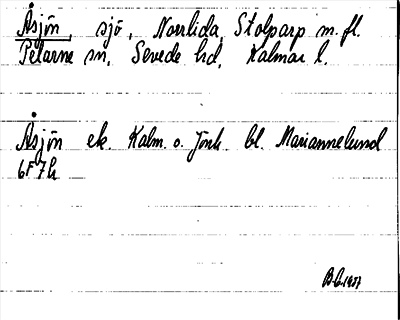 Åsjön, sjö, Norrlida, Stolparp m. fl.
Pelarne sn, Sevede hd, Kalmar l.
Åsjön ek. Kalm. o. Jönk. bl. Mariannelund
6F7h